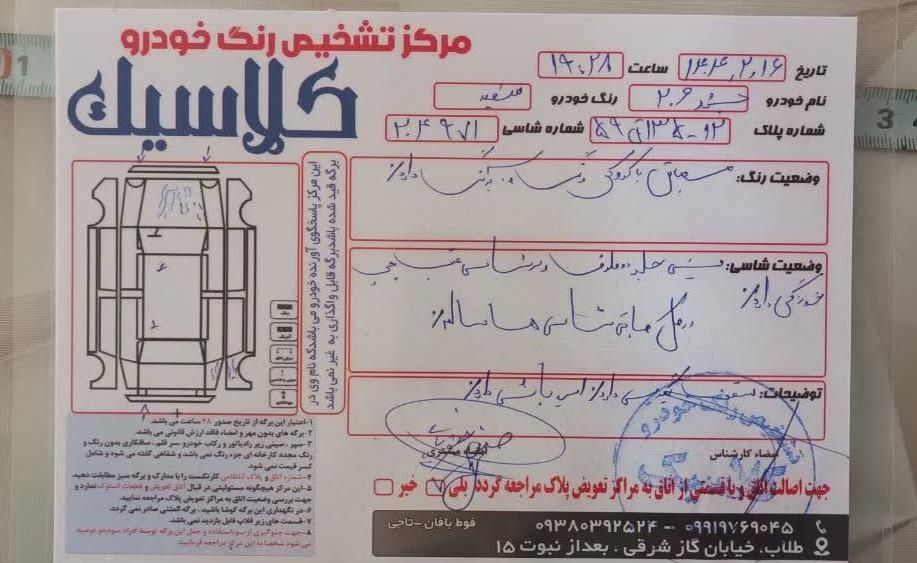 مرکز تشخیص رنگ خودرو
کلاسیک
تاریخ ۱۴۰۴,۲,۱۶ ساعت ۱۹:۲۸
نام خودرو پژو ۲۰۶ رنگ خودرو سفید
شماره پلاک شماره شاسی ۲۰۴۹۷۱
وضعیت رنگ: مطابق با کروکی رنگ و دارد
وضعیت شاسی: سینی جلو دو طرف و سرشاسی عقب چپ
خوردگی دارد
مابقی شاسی ها سالم
توضیحات: سقف تعویضی دارد ایربگ دارد
این مرکز پاسخگوی آورنده خودرو می باشد که نام وی در
برگه قید شده باشد برگه قابل واگذاری به غیر نمی باشد
۱-اعتبار این برگه از تاریخ صدور ۴۸ ساعت می باشد.
۲-برگه های بدون مهر و امضاء فاقد ارزش قانونی می باشد.
۳- سپر، سینی زیر رادیاتور و رکاب خودرو، سر قلم، صافکاری بدون رنگ و
رنگ مجدد کارخانه ای جزء رنگ نمی باشد و شفاهی گفته می شود و شامل
کسر قیمت نمی شود.
۴-شماره اتاق و پلاک انتظامی کارتکست را با مدارک و برگه سبز مطابقت دهید.
۵-این مرکز هیچگونه مسئولیتی در قبال اتاق تعویض و قطعات استوک ندارد و
جهت بررسی وضعیت اتاق به مراکز تعویض پلاک مراجعه نمایید.
۶-در نگهداری این برگه کوشا باشید، برگه المثنی صادر نمی گردد.
۷-قسمت های زیر قالپاق قابل بازدید نمی باشد.
۸-جهت جلوگیری از سوءاستفاده و جعل این برگه توسط افراد سودجو توصیه
می شود شخصا به این مرکز مراجعه فرمایید.
امضاء کارشناس
امضاء مشتری
جهت اصالت اتاق و یا قسمتی از اتاق به مراکز تعویض پلاک مراجعه گردد بلی خیر
۰۹۹۱۹۷۶۹۰۴۵ - ۰۹۳۸۰۳۹۲۵۲۴ فوط بافان - تاجی
طلاب، خیابان گاز شرقی، بعداز نبوت ۱۵
1
3